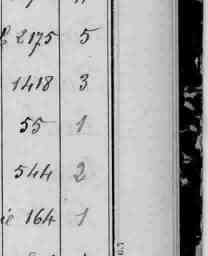 2175 5
1418 3
55 1
544 2
ie 164 1